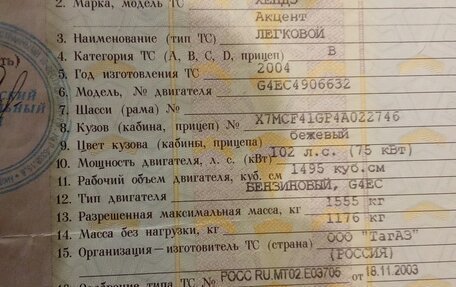 2. Марка, модель ТС ХЕНДЭ
Акцент
3. Наименование (тип ТС) ЛЕГКОВОЙ
4. Категория ТС (А, В, С, D, прицеп) В
5. Год изготовления ТС 2004
6. Модель, № двигателя G4EC4906632
7. Шасси (рама) №
8. Кузов (кабина, прицеп) № X7MCF41GP4A022746
9. Цвет кузова (кабины, прицепа) бежевый
10. Мощность двигателя, л. с. (кВт) 102 л.с. (75 кВт)
11. Рабочий объем двигателя, куб. см 1495 куб.см
12. Тип двигателя БЕНЗИНОВЫЙ, G4EC
13. Разрешенная максимальная масса, кг 1555 кг
14. Масса без нагрузки, кг 1176 кг
15. Организация—изготовитель ТС (страна) ООО "ТагАЗ"
(РОССИЯ)
Одобрение типа ТС № РОСС RU.МТ02.Е03705 от 18.11.2003